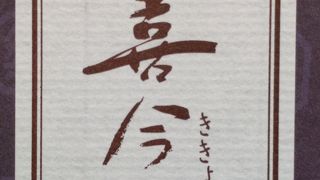 喜今
ききょ